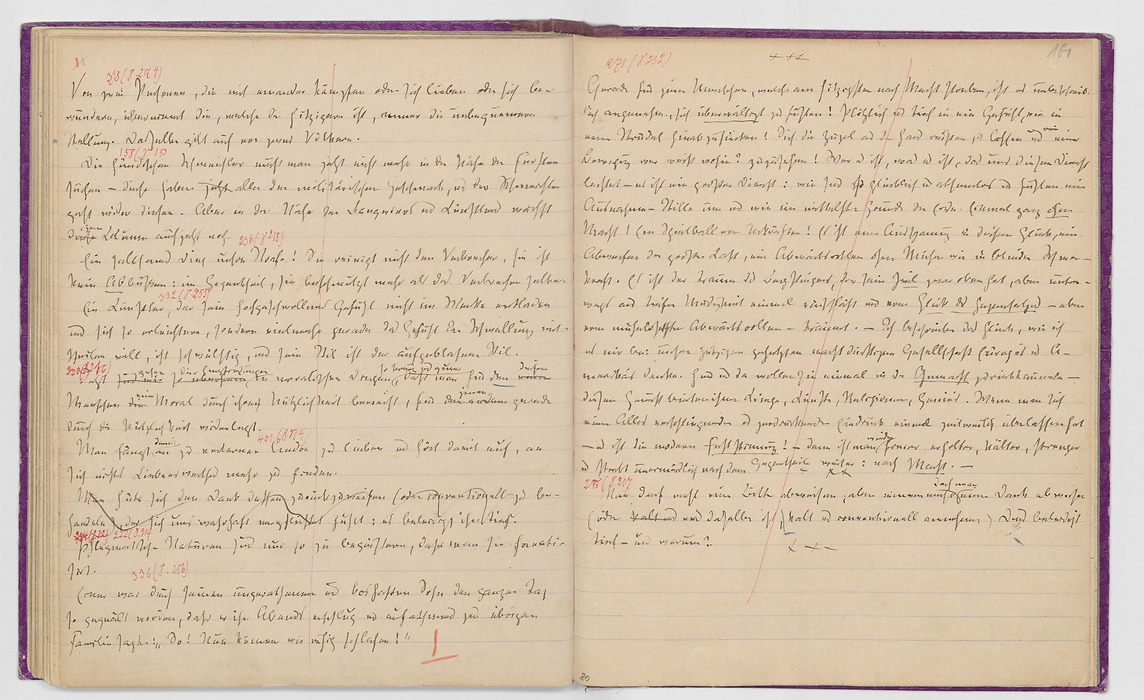 393 (S 274)
Von zwei Personen, die mit einander kämpfen oder sich lieben oder sich be-
wundern, übernimmt die, welche die hitzigere ist, immer die unbequemere
Stellung. Dasselbe gilt auch von zwei Völkern.
158
Die hündischen Schmeichler muß man jetzt nicht mehr in der Nähe der Fürsten
suchen – diese haben alle den militärischen Geschmack, und der Schmeichler
geht wider diesen. Aber in der Nähe der Banquiers und Künstler wächst
diese Blume auch jetzt noch
236 (S 218)
Ein seltsames Ding unsere Strafe! Sie reinigt nicht den Verbrecher, sie ist
kein Abbüßen: im Gegentheil, sie beschmutzt mehr als das Verbrechen selber.
332 (S 255)
Ein Künstler, der sein hochgeschwollenes Gefühl nicht im Werke entladen
und sich so erleichtern, sondern vielmehr gerade das Gefühl der Schwellung mit-
theilen will, ist schwülstig, und sein Stil ist der aufgeblasene Stil.
in moralischen Dingen, daß man für den
Menschen die Moral durch ihre Nützlichkeit beweist, für gerade
durch die Nützlichkeit widerlegt.
401 (S 274)
Man fängt damit an zu verlernen Andere zu lieben und hört damit auf, an
sich nichts Liebenswerthes mehr zu finden.
Man hüte sich den Dank dessen zurückzuweisen (oder conventionell zu be-
handeln), der sich uns wahrhaft verpflichtet fühlt: es beleidigt ihn tief.
222 (S 214)
Phlegmatische Naturen sind nur so zu begeistern, daß man sie fanati-
sirt.
336 (S. 256)
Einer war durch seinen ungerathenen und boshaften Sohn den ganzen Tag
so gequält worden, daß er ihn Abends erschlug und aufathmend zur übrigen
Familie sagte: „So! Nun können wir ruhig schlafen!"
160
271 (S 232)
Gerade für jene Menschen, welche am hitzigsten nach Macht streben, ist es unbeschreib-
lich angenehm, sich überwältigt zu fühlen! Plötzlich und tief in ein Gefühl, wie in
einen Strudel hinabzusinken! Sich die Zügel aus der Hand reißen zu lassen und wie eine
Bewegung wer weiß wohin? zuzusehen! Wer es ist, was es ist, das uns diesen Dienst
leistet – es ist ein großer Dienst: wir sind so glücklich und athemlos und fühlen eine
Ausnahme-Stille um uns wie im mittelsten Grunde der Erde. Einmal ganz ohne
Macht! Ein Spielball von Urkräften! Es ist eine Ausspannung in diesem Glück, ein
Abwerfen der großen Last, ein Abwärtsrollen ohne Mühe wie in blinder Schwer-
kraft. Es ist der Traum des Bergsteigers, der sein Ziel zwar oben hat, aber unter-
wegs aus tiefer Müdigkeit einmal einschläft und vom Glück des Gegensatzes – eben
vom mühelosesten Abwärtsrollen – träumt. – Ich beschreibe das Glück, wie ich
es mir bei unserer jetzigen gehetzten machtdürstigen Gesellschaft Europa's und A-
merika's denke. Hier und da wollen sie einmal in die Ohnmacht zurücktaumeln –
diesen Genuß bieten ihnen Kriege, Künste, Religionen, Genie's. Wenn man sich
einem Alles verschlingenden und zerdrückenden Eindruck einmal zeitweilig überlassen hat
– es ist die moderne Feststimmung! – dann ist man wieder freier erholter, kälter, strenger
und strebt unermüdlich nach dem Gegentheile weiter: nach Macht. –
235 (S 217)
Man darf wohl eine Bitte abweisen, aber nimmermehr darf man einen Dank abweisen
(oder was dasselbe ist, kalt und conventionell annehmen) Dies beleidigt
tief – und warum?
80